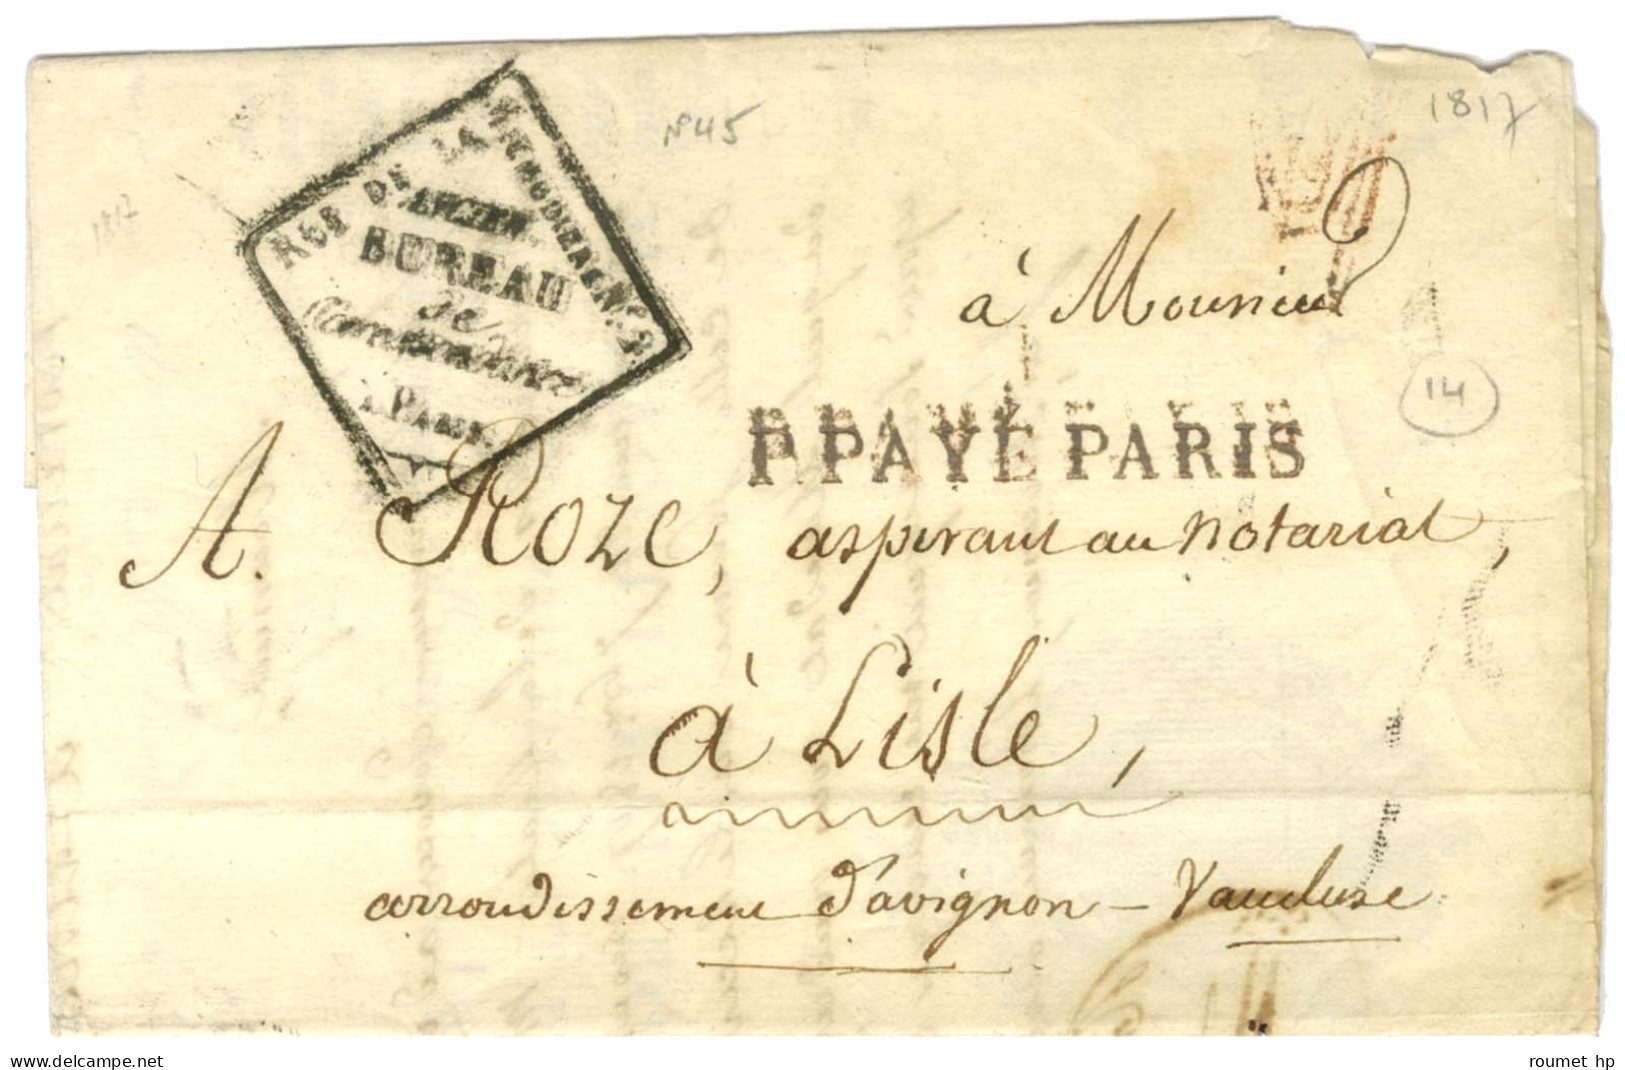 1817
N°45
1817
RUE DE LA MICHODIERE N.° 2.
ANCIEN
BUREAU
de
Confiance
à PARIS.
à Monsieur
14
P.PAYÉ PARIS
A. Roze, aspirant au notariat,
à Lisle,
arrondissement d'avignon – Vaucluse
delcampe.net
roumet hp